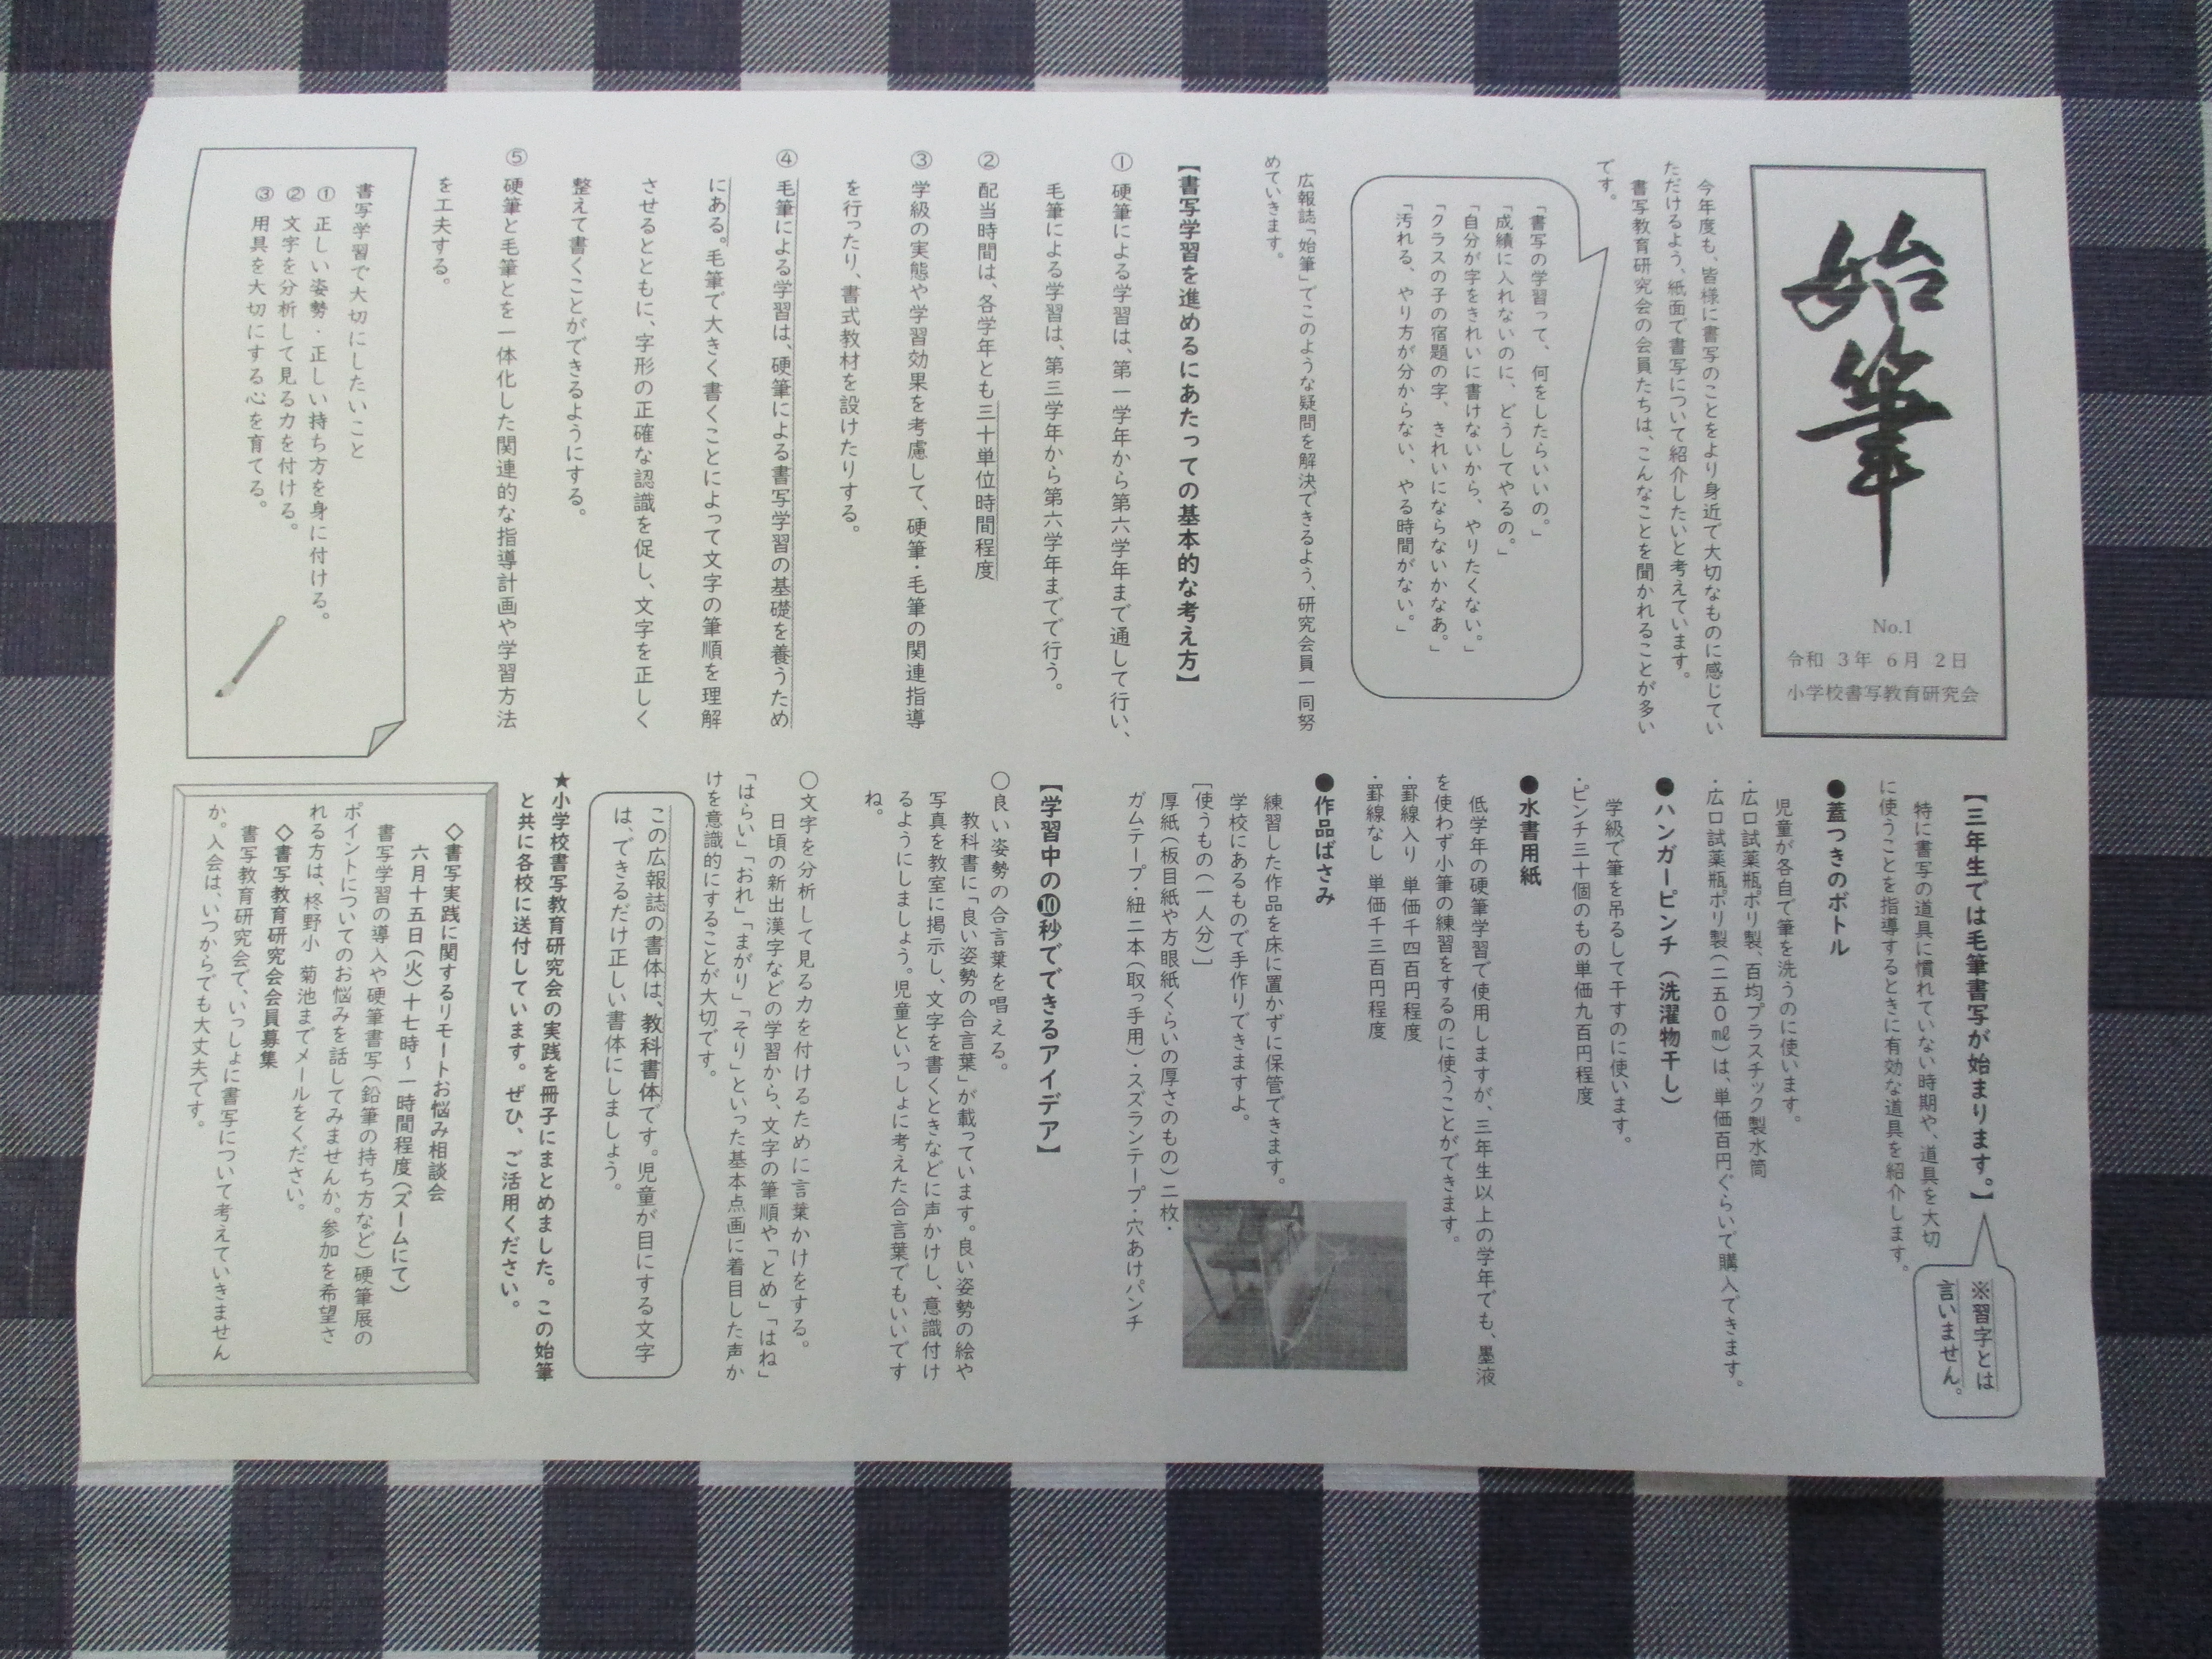 始筆
No.1
令和 3年 6月 2日
小学校書写教育研究会
今年度も、皆様に書写のことをより身近で大切なものに感じてい
ただけるよう、紙面で書写について紹介したいと考えています。
書写教育研究会の会員たちは、こんなことを聞かれることが多い
です。
「書写の学習って、何をしたらいいの。」
「成績に入れないのに、どうしてやるの。」
「自分が字をきれいに書けないから、やりたくない。」
「クラスの子の宿題の字、きれいにならないかなあ。」
「汚れる、やり方が分からない、やる時間がない。」
広報誌「始筆」でこのような疑問を解決できるよう、研究会員一同努
めていきます。
【書写学習を進めるにあたっての基本的な考え方】
① 硬筆による学習は、第一学年から第六学年まで通して行い、
毛筆による学習は、第三学年から第六学年までで行う。
② 配当時間は、各学年とも三十単位時間程度
③ 学級の実態や学習効果を考慮して、硬筆・毛筆の関連指導
を行ったり、書式教材を設けたりする。
④ 毛筆による学習は、硬筆による書写学習の基礎を養うため
にある。毛筆で大きく書くことによって文字の筆順を理解
させるとともに、字形の正確な認識を促し、文字を正しく
整えて書くことができるようにする。
⑤ 硬筆と毛筆とを一体化した関連的な指導計画や学習方法
を工夫する。
書写学習で大切にしたいこと
① 正しい姿勢・正しい持ち方を身に付ける。
② 文字を分析して見る力を付ける。
③ 用具を大切にする心を育てる。
【三年生では毛筆書写が始まります。】
※習字とは
言いません。
特に書写の道具に慣れていない時期や、道具を大切
に使うことを指導するときに有効な道具を紹介します。
●蓋つきのボトル
児童が各自で筆を洗うのに使います。
・広口試薬瓶ポリ製、百均プラスチック製水筒
・広口試薬瓶ポリ製（二五０㎖）は、単価百円ぐらいで購入できます。
●ハンガーピンチ（洗濯物干し）
学級で筆を吊るして干すのに使います。
・ピンチ三十個のもの単価九百円程度
●水書用紙
低学年の硬筆学習で使用しますが、三年生以上の学年でも、墨液
を使わず小筆の練習をするのに使うことができます。
・罫線入り 単価千四百円程度
・罫線なし 単価千三百円程度
●作品ばさみ
練習した作品を床に置かずに保管できます。
学校にあるもので手作りできますよ。
［使うもの（一人分）］
厚紙（板目紙や方眼紙くらいの厚さのもの）二枚・
ガムテープ・紐二本（取っ手用）・スズランテープ・穴あけパンチ
【学習中の❿秒でできるアイデア】
○良い姿勢の合言葉を唱える。
教科書に「良い姿勢の合言葉」が載っています。良い姿勢の絵や
写真を教室に掲示し、文字を書くときなどに声かけし、意識付け
るようにしましょう。児童といっしょに考えた合言葉でもいいです
ね。
○文字を分析して見る力を付けるために言葉かけをする。
日頃の新出漢字などの学習から、文字の筆順や「とめ」「はね」
「はらい」「おれ」「まがり」「そり」といった基本点画に着目した声か
けを意識的にすることが大切です。
この広報誌の書体は、教科書体です。児童が目にする文字
は、できるだけ正しい書体にしましょう。
★小学校書写教育研究会の実践を冊子にまとめました。この始筆
と共に各校に送付しています。ぜひ、ご活用ください。
◇書写実践に関するリモートお悩み相談会
六月十五日（火）十七時～一時間程度（ズームにて）
書写学習の導入や硬筆書写（鉛筆の持ち方など）硬筆展の
ポイントについてのお悩みを話してみませんか。参加を希望さ
れる方は、柊野小 菊池までメールをください。
◇書写教育研究会会員募集
書写教育研究会で、いっしょに書写について考えていきません
か。入会は、いつからでも大丈夫です。